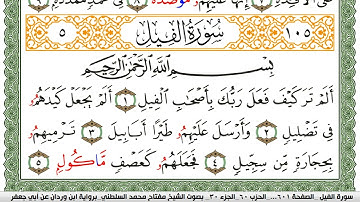 الْأَفْئِدَةِ ۝٧ إِنَّهَا عَلَيْهِمُۥ مُوصَدَةٌ ۝٨ فِى عَمَدٍ مُمَدَّدَةٍ ۝٩
٥ سُورَةُ الْفِيلِ ١٠٥
بِسْمِ اللَّهِ الرَّحْمَٰنِ الرَّحِيمِ
أَلَمْ تَرَ كَيْفَ فَعَلَ رَبُّكَ بِأَصْحَابِ الْفِيلِ ۝١ أَلَمْ يَجْعَلْ كَيْدَهُمُۥ
فِى تَضْلِيلٍ ۝٢ وَأَرْسَلَ عَلَيْهِمُۥ طَيْرًا أَبَابِيلَ ۝٣ تَرْمِيهِمُۥ
بِحِجَارَةٍ مِن سِجِّيلٍ ۝٤ فَجَعَلَهُمُۥ كَعَصْفٍ مَاكُولٍ ۝٥
سورة الفيل _ الصفحة ٦٠١_ الحزب ٦٠_ الجزء ٣٠_ بصوت الشيخ مفتاح محمد السلطني _برواية ابن وردان عن أبي جعفر